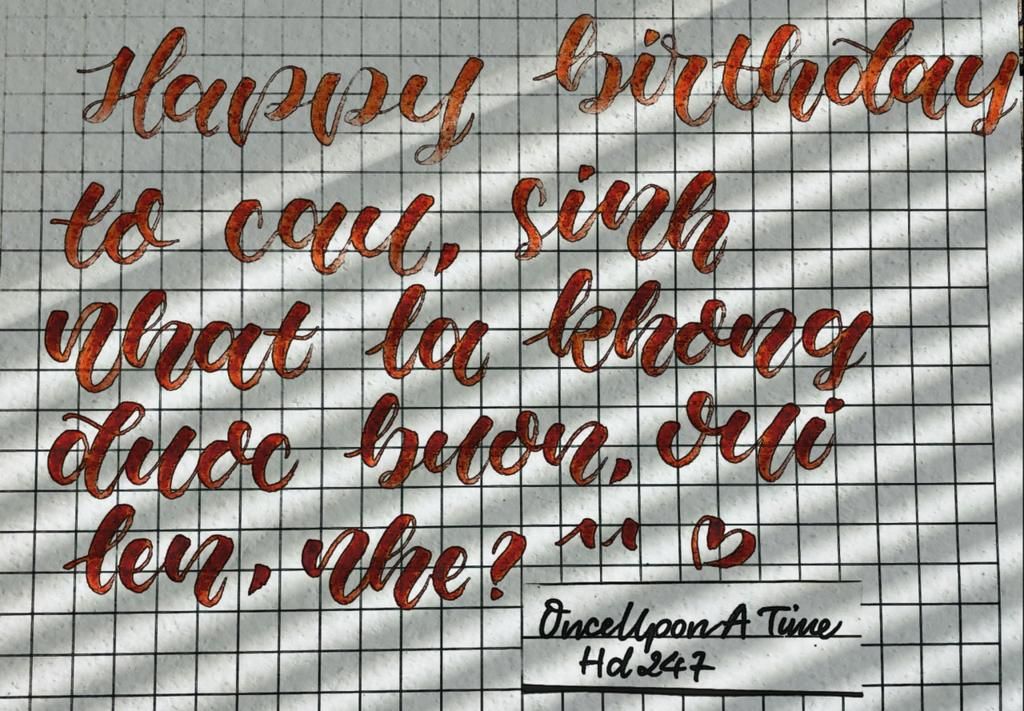 Happy birthday
to cau, sinh
nhat la khong
duoc buon, vui
len, nhe? ^^ ♡
OnceUponA Time
Hd247